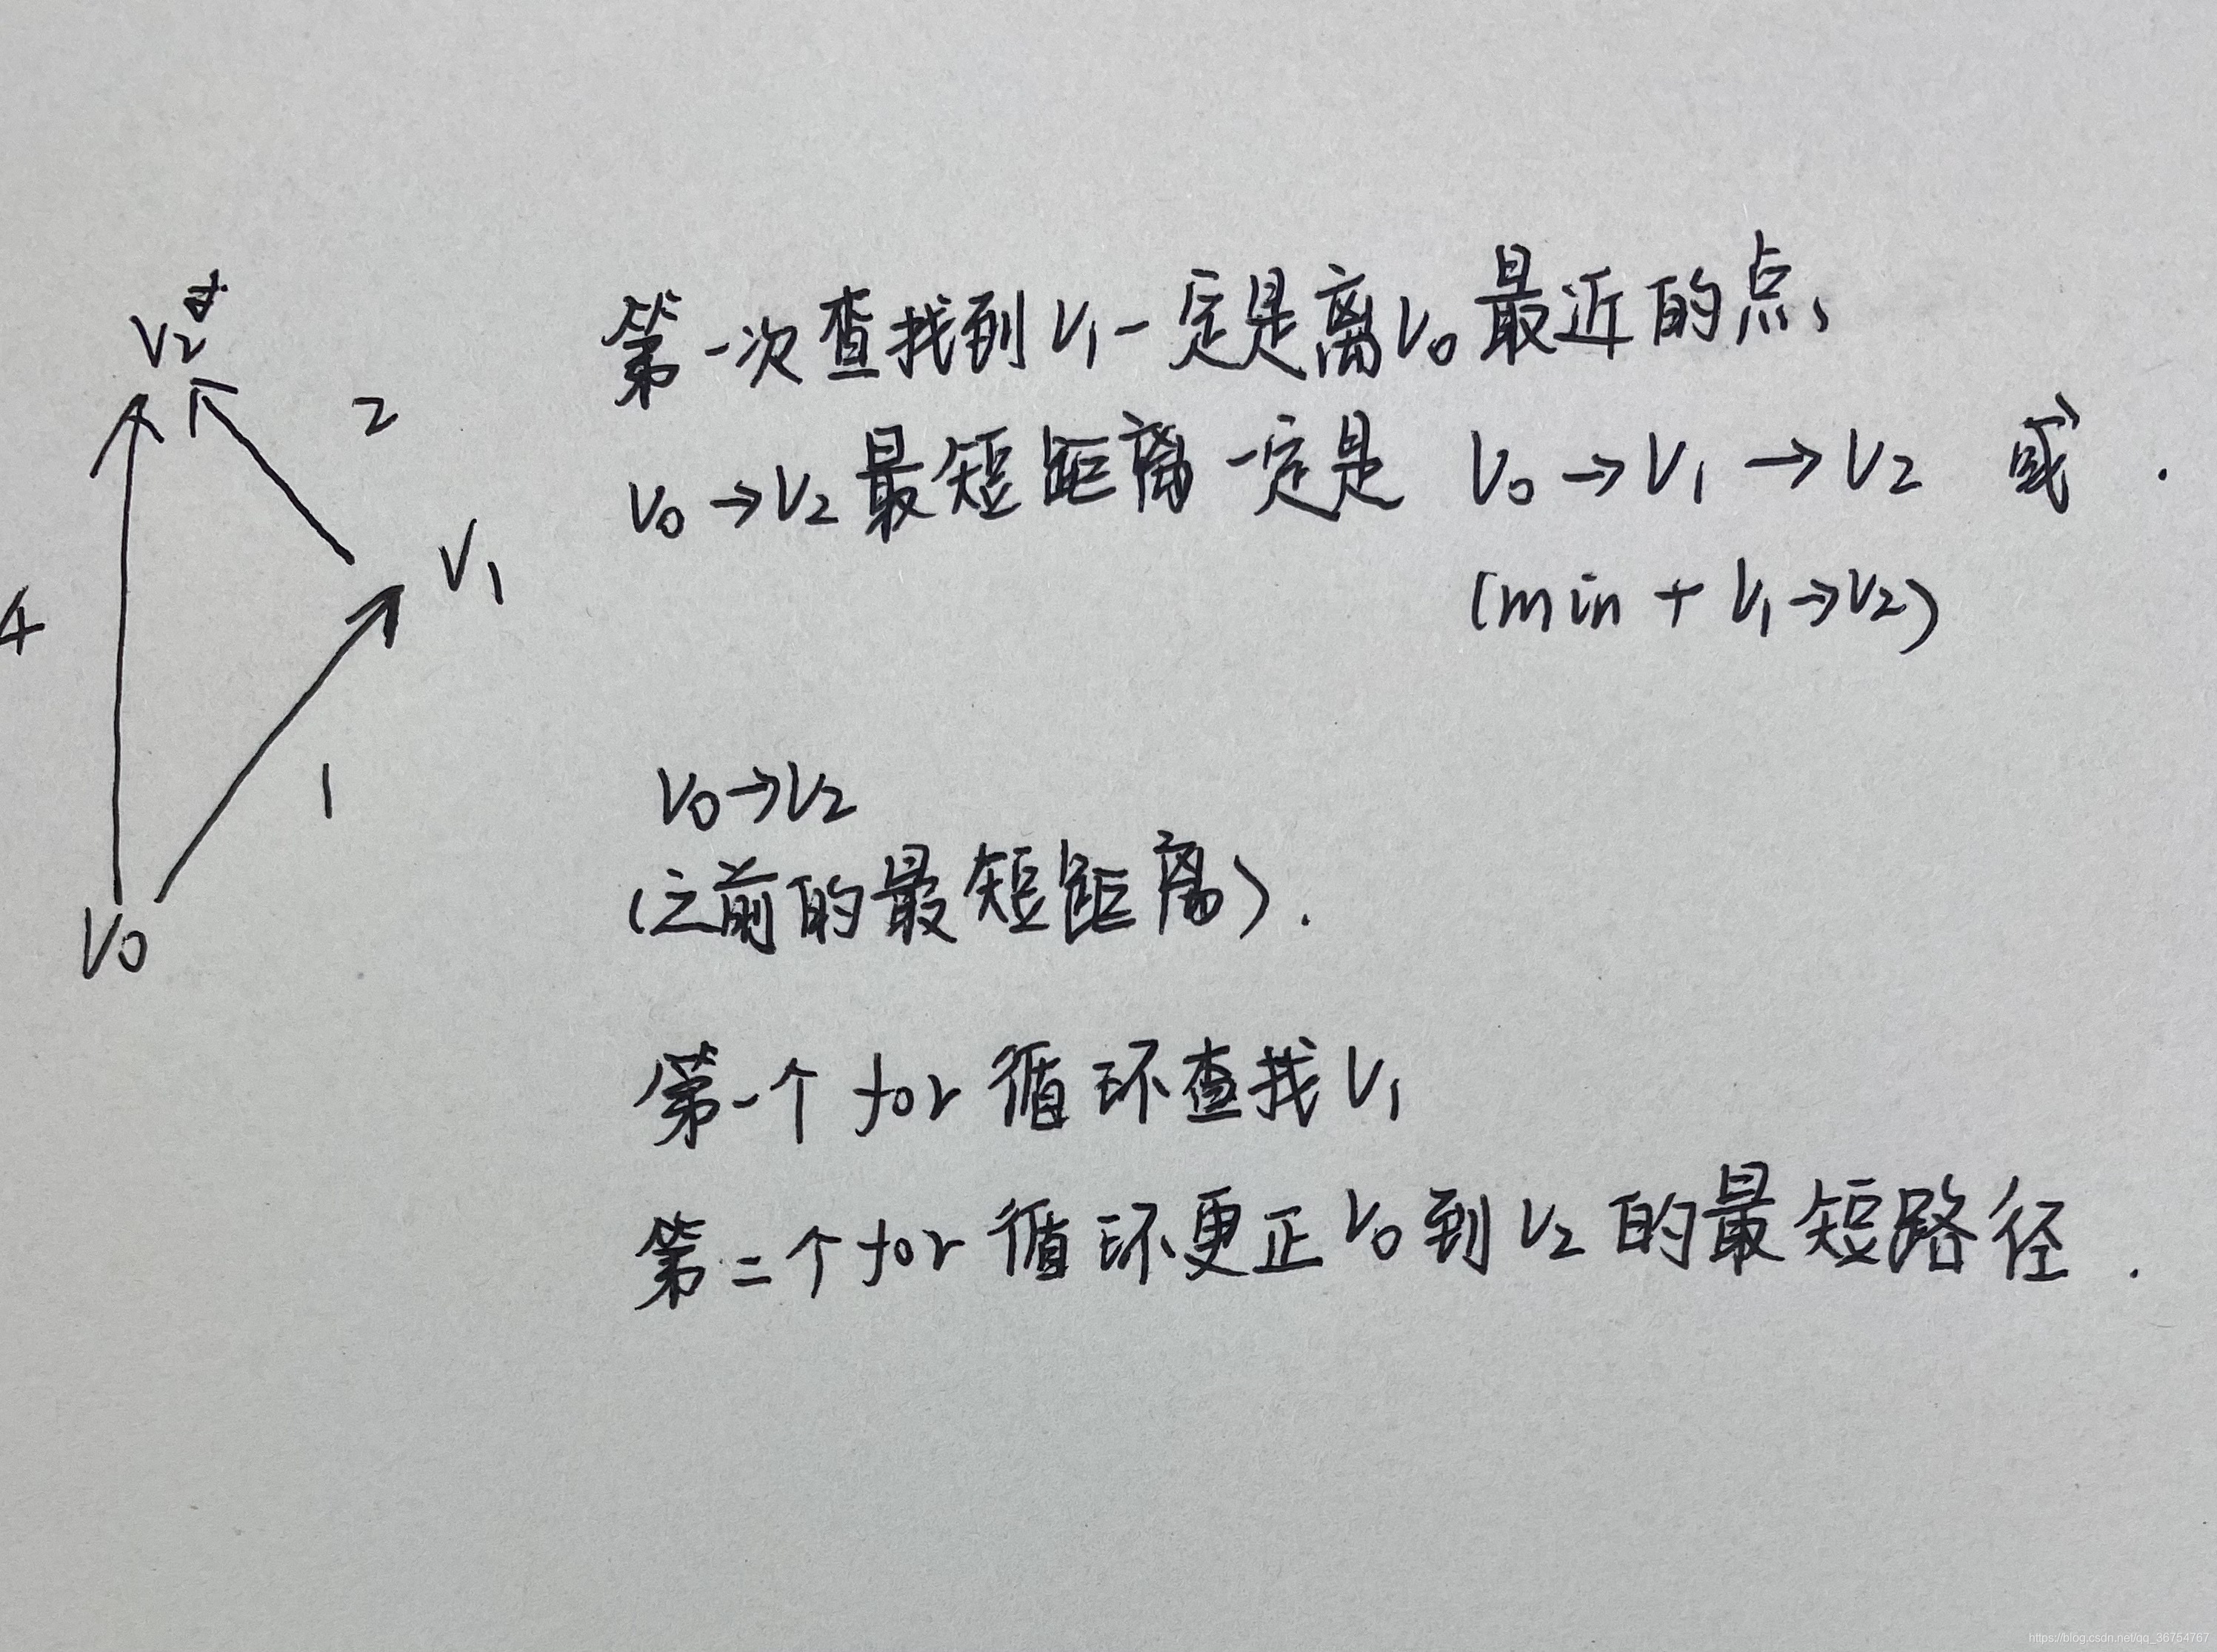 V2
2
V1
4
1
V0
第一次查找到V1一定是离V0最近的点、
V0→V2最短距离一定是 V0→V1→V2 或.
(min + V1→V2)
V0→V2
(之前的最短距离).
第一个 for 循环查找V1
第二个for 循环更正V0到V2的最短路径.
https://blog.csdn.net/qq_36754767